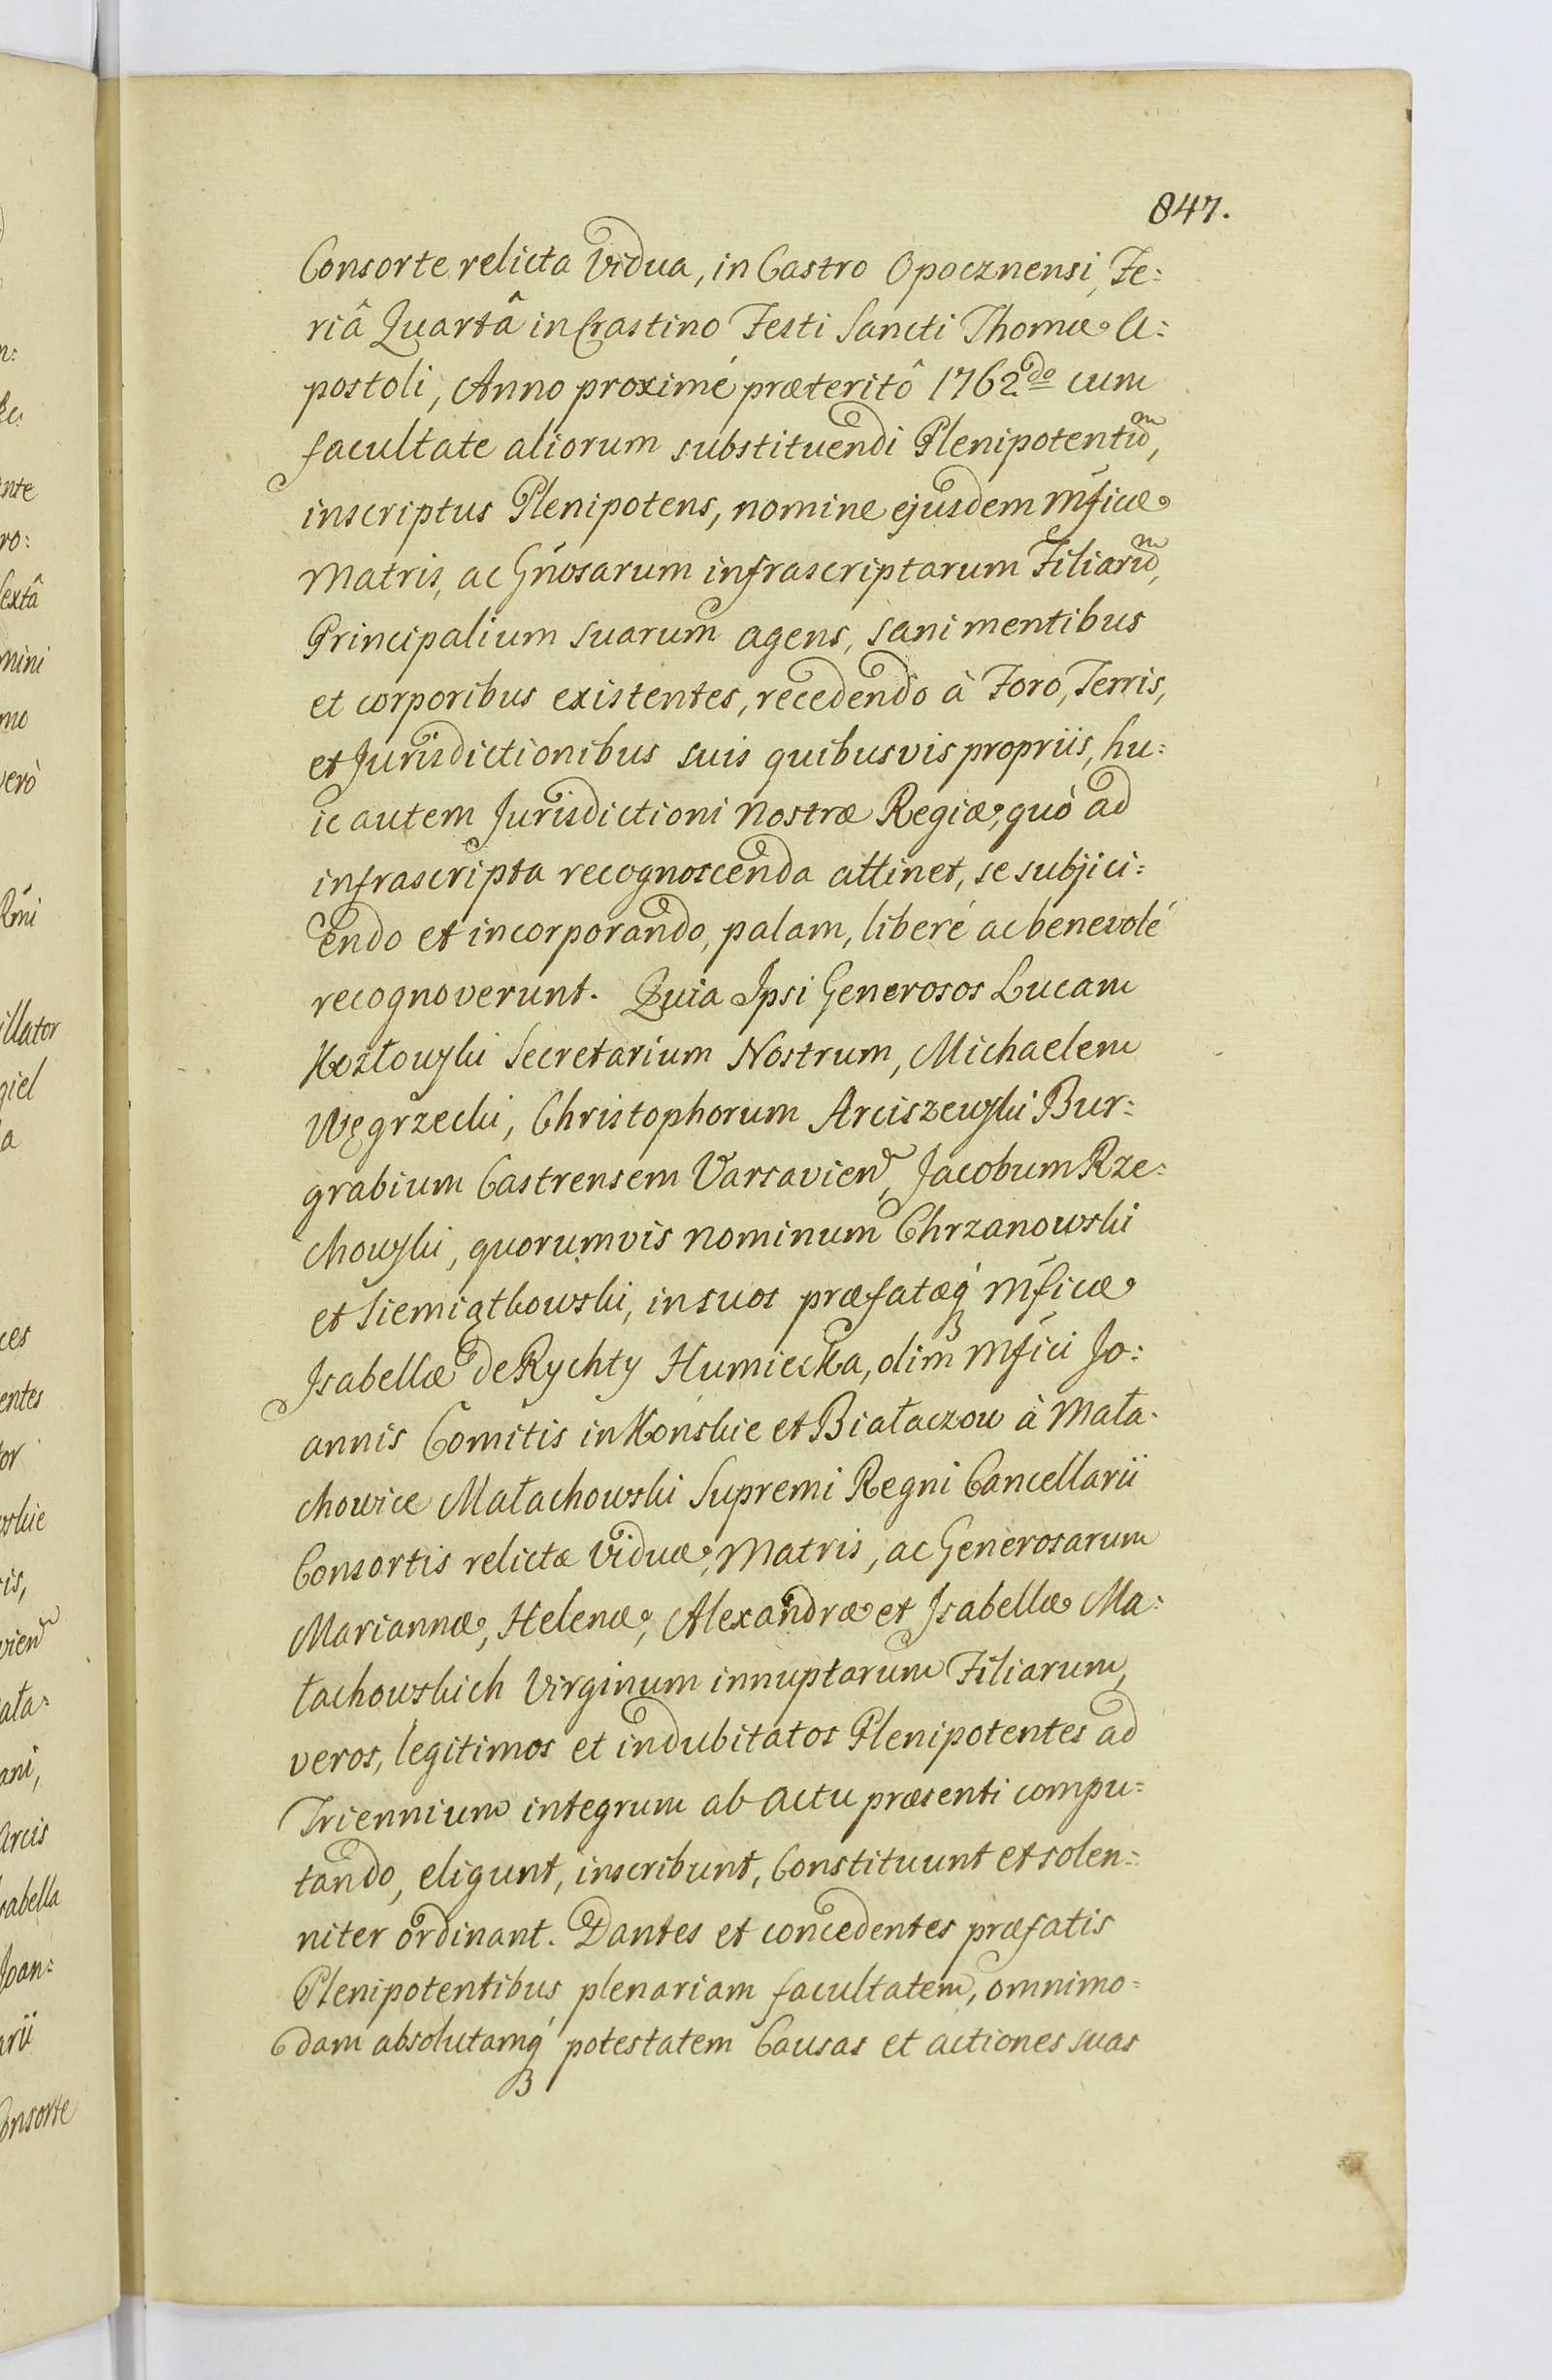 847.
Consorte relicta Vidua, in Castro Opocznensi, Fe:
riâ Quartâ in Crastino Festi Sancti Thomæ A:
postoli, Anno proximé præteritô 1762do cum
facultate aliorum substituendi Plenipotentiũ,
inscriptus Plenipotens, nomine ejusdem Mficæ
Matris, ac Gnosarum infrascriptarum Filiarũ,
Principalium suarum agens, sani mentibus
et corporibus existentes, recedendo à Foro, Terris,
et Jurisdictionibus suis quibusvis propriis, hu:
ic autem Jurisdictioni Nostræ Regiæ, quò ad
infrascripta recognoscenda attinet, se subjici:
endo et incorporando, palam, liberé ac benevolé
recognoverunt. Quia Ipsi Generosos Lucam
Kozłowski Secretarium Nostrum, Michaelem
Węgrzecki, Christophorum Arciszewski Bur:
grabium Castrensem Varsavien, Jacobum Rze:
chowski, quorumvis nominum Chrzanowski
et Siemiątkowski, in suos præfatæq Mficæ
Isabellæ de Rychty Humiecka, olim Mfici Jo:
annis Comitis in Konskie et Białaczow à Mała:
chowice Małachowski Supremi Regni Cancellarii
Consortis relictæ Viduæ, Matris, ac Generosarum
Mariannæ, Helenæ, Alexandræ et Isabellæ Ma:
łachowskich Virginum innuptarum Filiarum,
veros, legitimos et indubitatos Plenipotentes ad
Triennium integrum ab Actu præsenti compu:
tando, eligunt, inscribunt, Constituunt et solen:
niter ordinant. Dantes et concedentes præfatis
Plenipotentibus plenariam facultatem, omnimo:
dam absolutamq potestatem Causas et actiones suas